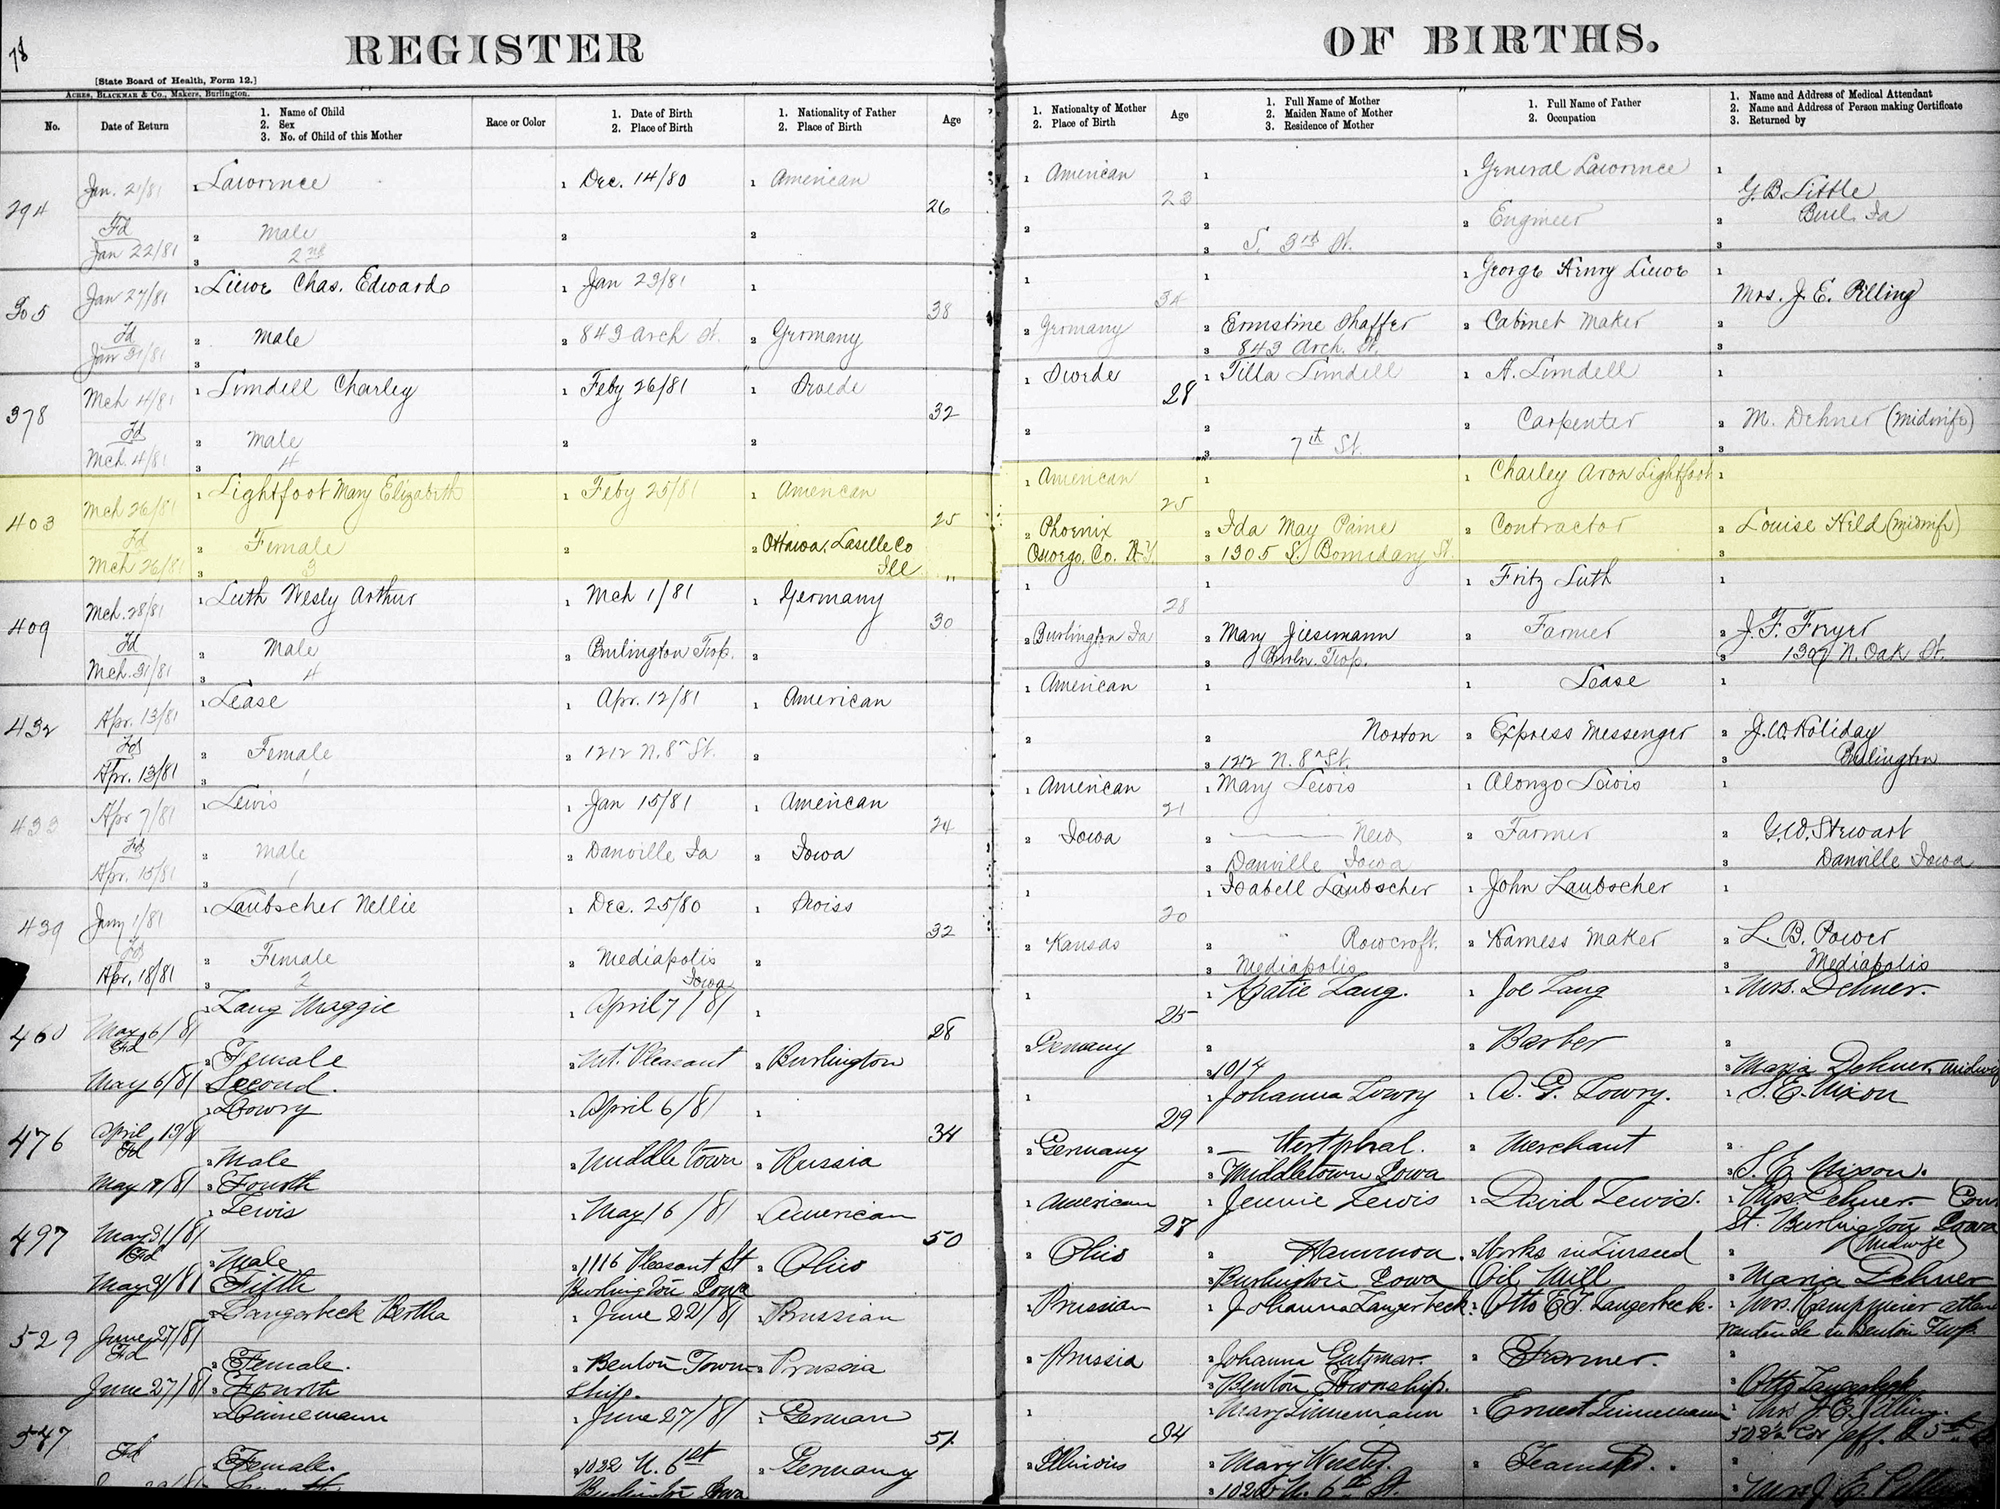 78
REGISTER OF BIRTHS.
[State Board of Health, Form 12.]
ACRES, BLACKMAR & CO., Makers, Burlington.
No.
Date of Return
1. Name of Child
2. Sex
3. No. of Child of this Mother
Race or Color
1. Date of Birth
2. Place of Birth
1. Nationality of Father
2. Place of Birth
Age
1. Nationality of Mother
2. Place of Birth
Age
1. Full Name of Mother
2. Maiden Name of Mother
3. Residence of Mother
1. Full Name of Father
2. Occupation
1. Name and Address of Medical Attendant
2. Name and Address of Person making Certificate
3. Returned by
294 Jan. 21/81 1 Lawrence 1 Dec. 14/80 1 American 26 1 American 23 1 1 General Lawrence 1
G. B. Little
Fd 2 Male 2 2 2 2 2 Engineer 2 Burl. Ia
Jan 22/81 3 2nd 3 S. 3th St. 3
305 Jan 27/81 1 Liewe Chas. Edward 1 Jan 23/81 1 38 1 34 1 1 George Henry Liewe 1
Mrs. J. E. Pilling
Fd 2 Male 2 843 Arch St. 2 Germany 2 Germany 2 Ernstine Shaffer 2 Cabinet Maker 2
Jan 31/81 3 3 843 Arch. St. 3
378 Mch 4/81 1 Limdell Charley 1 Feby 26/81 1 Swede 32 1 Swede 28 1 Tilla Limdell 1 A. Limdell 1
Fd 2 Male 2 2 2 2 2 Carpenter 2 M. Dehner (midwife)
Mch. 4/81 3 4 3 7th St. 3
403 Mch 26/81 1 Lightfoot Mary Elizabeth 1 Feby 25/81 1 American 25 1 American 25 1 1 Charley Aron Lightfoot 1
Fd 2 Female 2 2 Ottawa, Laselle Co 2 Phoenix 2 Ida May Paine 2 Contractor 2 Louise Held (midwife)
Mch 26/81 3 3 Ill. Oswego, Co. N.Y. 3 1305 S. Boundary St. 3
409 Mch. 28/81 1 Luth Wesly Arthur 1 Mch 1/81 1 Germany 30 1 28 1 1 Fritz Luth 1
Fd 2 Male 2 Burlington Twp. 2 2 Burlington Ia 2 Mary Jiesemann 2 Farmer 2 J. F. Fryer
Mch. 31/81 3 4 3 Burln. Twp. 3 1307 N. Oak St.
432 Apr. 13/81 1 Lease 1 Apr. 12/81 1 American 1 American 1 1 Lease 1
Fd 2 Female 2 1212 N. 8th St. 2 2 2 Norton 2 Express Messenger 2 J. W. Holiday
Apr. 13/81 3 1 3 1212 N. 8th St. 3 Burlington
433 Apr 7/81 1 Lewis 1 Jan 15/81 1 American 24 1 American 21 1 Mary Lewis 1 Alonzo Lewis 1
Fd 2 Male 2 Danville Ia 2 Iowa 2 Iowa 2 New 2 Farmer 2 G. W. Stewart
Apr. 15/81 3 1 3 Danville Iowa 3 Danville Iowa
439 Jany 1/81 1 Laubscher Nellie 1 Dec. 25/80 1 Swiss 32 1 20 1 Isabell Laubscher 1 John Laubscher 1
Fd 2 Female 2 Mediapolis 2 2 Kansas 2 " Rowcroft. 2 Harness Maker 2 L. B. Power
Apr. 18/81 3 2 Iowa 3 Mediapolis 3 Mediapolis
460 May 6/81 1 Lang Maggie 1 April 7/81 1 28 1 25 1 Katie Lang. 1 Joe Lang 1 Mrs. Dehner.
Fd 2 Female 2 Mt. Pleasant 2 Burlington 2 Germany 2 2 Barber 2
May 6/81 3 Second. 3 1017 3 Maria Dehner, midwife
476 April 13/81 1 Lowry 1 April 6/81 1 34 1 29 1 Johanna Lowry 1 A. G. Lowry. 1 S. E. Nixon
Fd 2 Male 2 Middletown 2 Russia 2 Germany 2 — Westphal. 2 Merchant 2
May 18/81 3 Fourth 3 Middletown Iowa 3 S. E. Nixon.
497 May 31/81 1 Lewis 1 May 16/81 1 American 50 1 American 27 1 Jennie Lewis 1 David Lewis. 1 Mrs. Dehner
St. Burlington Iowa
(Midwife)
Fd 2 Male 2 1116 Pleasant St 2 Ohio 2 Ohio 2 Hammon. 2 Works in Linseed 2
May 31/81 3 Fifth Burlington Iowa 3 Burlington Iowa Oil Mill 3 Maria Dehner
529 June 27/81 1 Langerbeck Bertha 1 June 22/81 1 Prussian 1 Prussian 1 Johanna Langerbeck 1 Otto E. F. Langerbeck. 1 Mrs. Kampmeier
in Benton Twp
Fd 2 Female. 2 Benton Town- 2 Prussia 2 Prussia 2 Johanna 2 Farmer. 2
June 27/81 3 Fourth ship. 3 Benton Township. 3 Otto Langerbeck
547 1 Linnemann 1 June 27/81 1 German 51 1 34 1 Mary Linnemann 1 Ernest Linnemann 1 Mrs J. E. Pilling
Cor Jeff. & 5th
Fd 2 Female. 2 1022 N. 6th 2 Germany 2 Illinois 2 Mary 2 Teamster. 2
Burlington Iowa 3 N. 6th St. 3 Mrs J. E. Pilling